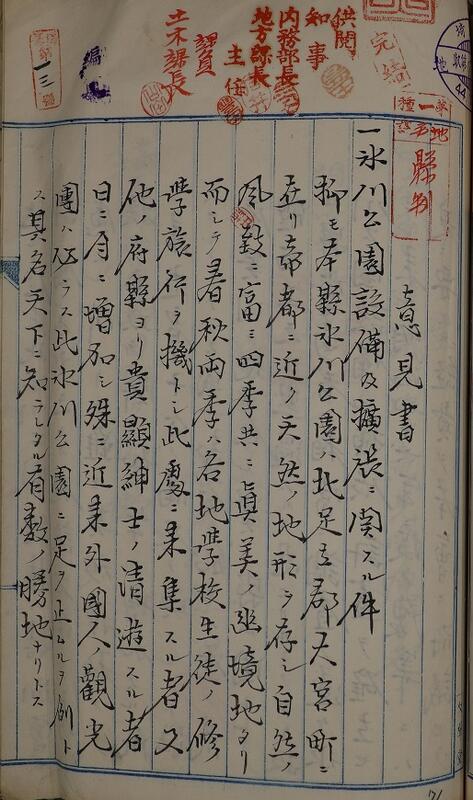 供閲
知事
内務部長
地方課長
主任
課員
土木課長
完結
第一種
縣
意見書
一氷川公園設備及擴張ニ関スル件
抑モ本縣氷川公園ハ北足立郡大宮町ニ
在リ帝都ニ近ク天然ノ地形ヲ存シ自然ノ
風致ニ富ミ四季共ニ眞美ノ幽境地タリ
而シテ春秋両季ハ各地学校生徒ノ修
学旅行ヲ機トシ此處ニ来集スル者又
他ノ府縣ヨリ貴顯紳士ノ清遊スル者
日ニ月ニ増加シ殊ニ近来外國人ノ觀光
團ハ必ラス此氷川公園ニ足ヲ止ムルヲ例ト
ス其名天下ニ知ラレタル有数ノ勝地ナリトス